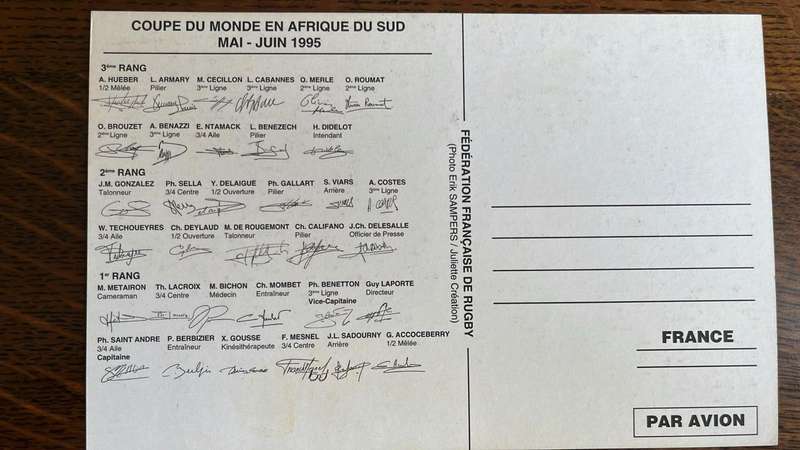 COUPE DU MONDE EN AFRIQUE DU SUD
MAI - JUIN 1995
3ème RANG
A. HUEBER L. ARMARY M. CECILLON L. CABANNES O. MERLE O. ROUMAT
1/2 Mêlée Pilier 3ème Ligne 3ème Ligne 2ème Ligne 2ème Ligne
O. BROUZET A. BENAZZI E. NTAMACK L. BENEZECH H. DIDELOT
2ème Ligne 3ème Ligne 3/4 Aile Pilier Intendant
2ème RANG
J.M. GONZALEZ Ph. SELLA Y. DELAIGUE Ph. GALLART S. VIARS A. COSTES
Talonneur 3/4 Centre 1/2 Ouverture Pilier Arrière 3ème Ligne
W. TECHOUEYRES Ch. DEYLAUD M. DE ROUGEMONT Ch. CALIFANO J.Ch. DELESALLE
3/4 Aile 1/2 Ouverture Talonneur Pilier Officier de Presse
1er RANG
M. METAIRON Th. LACROIX M. BICHON Ch. MOMBET Ph. BENETTON Guy LAPORTE
Cameraman 3/4 Centre Médecin Entraîneur 3ème Ligne Directeur
Vice-Capitaine
Ph. SAINT ANDRE P. BERBIZIER X. GOUSSE F. MESNEL J.L. SADOURNY G. ACCOCEBERRY
3/4 Aile Entraîneur Kinésithérapeute 3/4 Centre Arrière 1/2 Mêlée
Capitaine
FÉDÉRATION FRANÇAISE DE RUGBY
(Photo Erik SAMPERS / Juliette Création)
FRANCE
PAR AVION